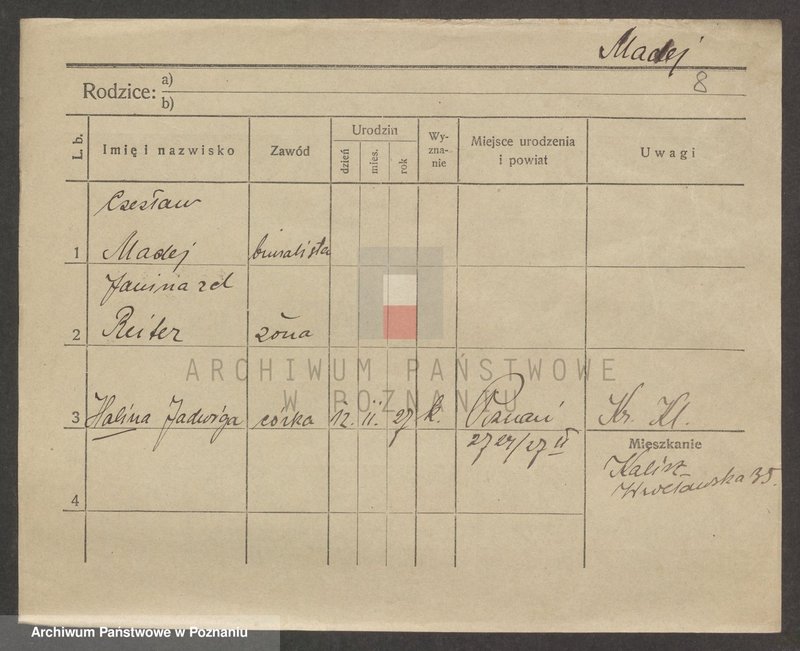 Madej
8
Rodzice: a)
b)
L. b.
Imię i nazwisko
Zawód
Urodzin
dzień
mies.
rok
Wy-
zna-
nie
Miejsce urodzenia
i powiat
Uwagi
Czesław
1 Madej biuralista
Janina zd
2 Reiter żona
ARCHIWUM PAŃSTWOWE
W POZNANIU
3 Halina Jadwiga córka 12. II. 27 k. Poznań Kr. Kl.
2727/27 II
Mieszkanie
Kalisz
Wrocławska 35.
4
Archiwum Państwowe w Poznaniu